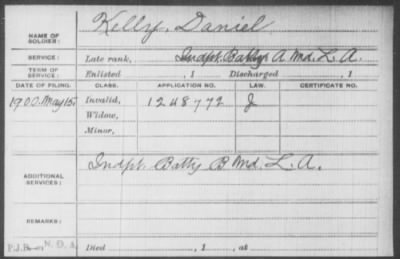 NAME OF SOLDIER: Kelly, Daniel
SERVICE: Late rank, Indpt. Batty A Md. L. A.
TERM OF SERVICE: Enlisted , 1 Discharged , 1
DATE OF FILING. CLASS. APPLICATION NO. LAW. CERTIFICATE NO.
1900 May 15. Invalid, 1248772 J
Widow,
Minor,
ADDITIONAL SERVICES: Indpt. Batty B Md. L. A.
REMARKS:
Died , 1 , at